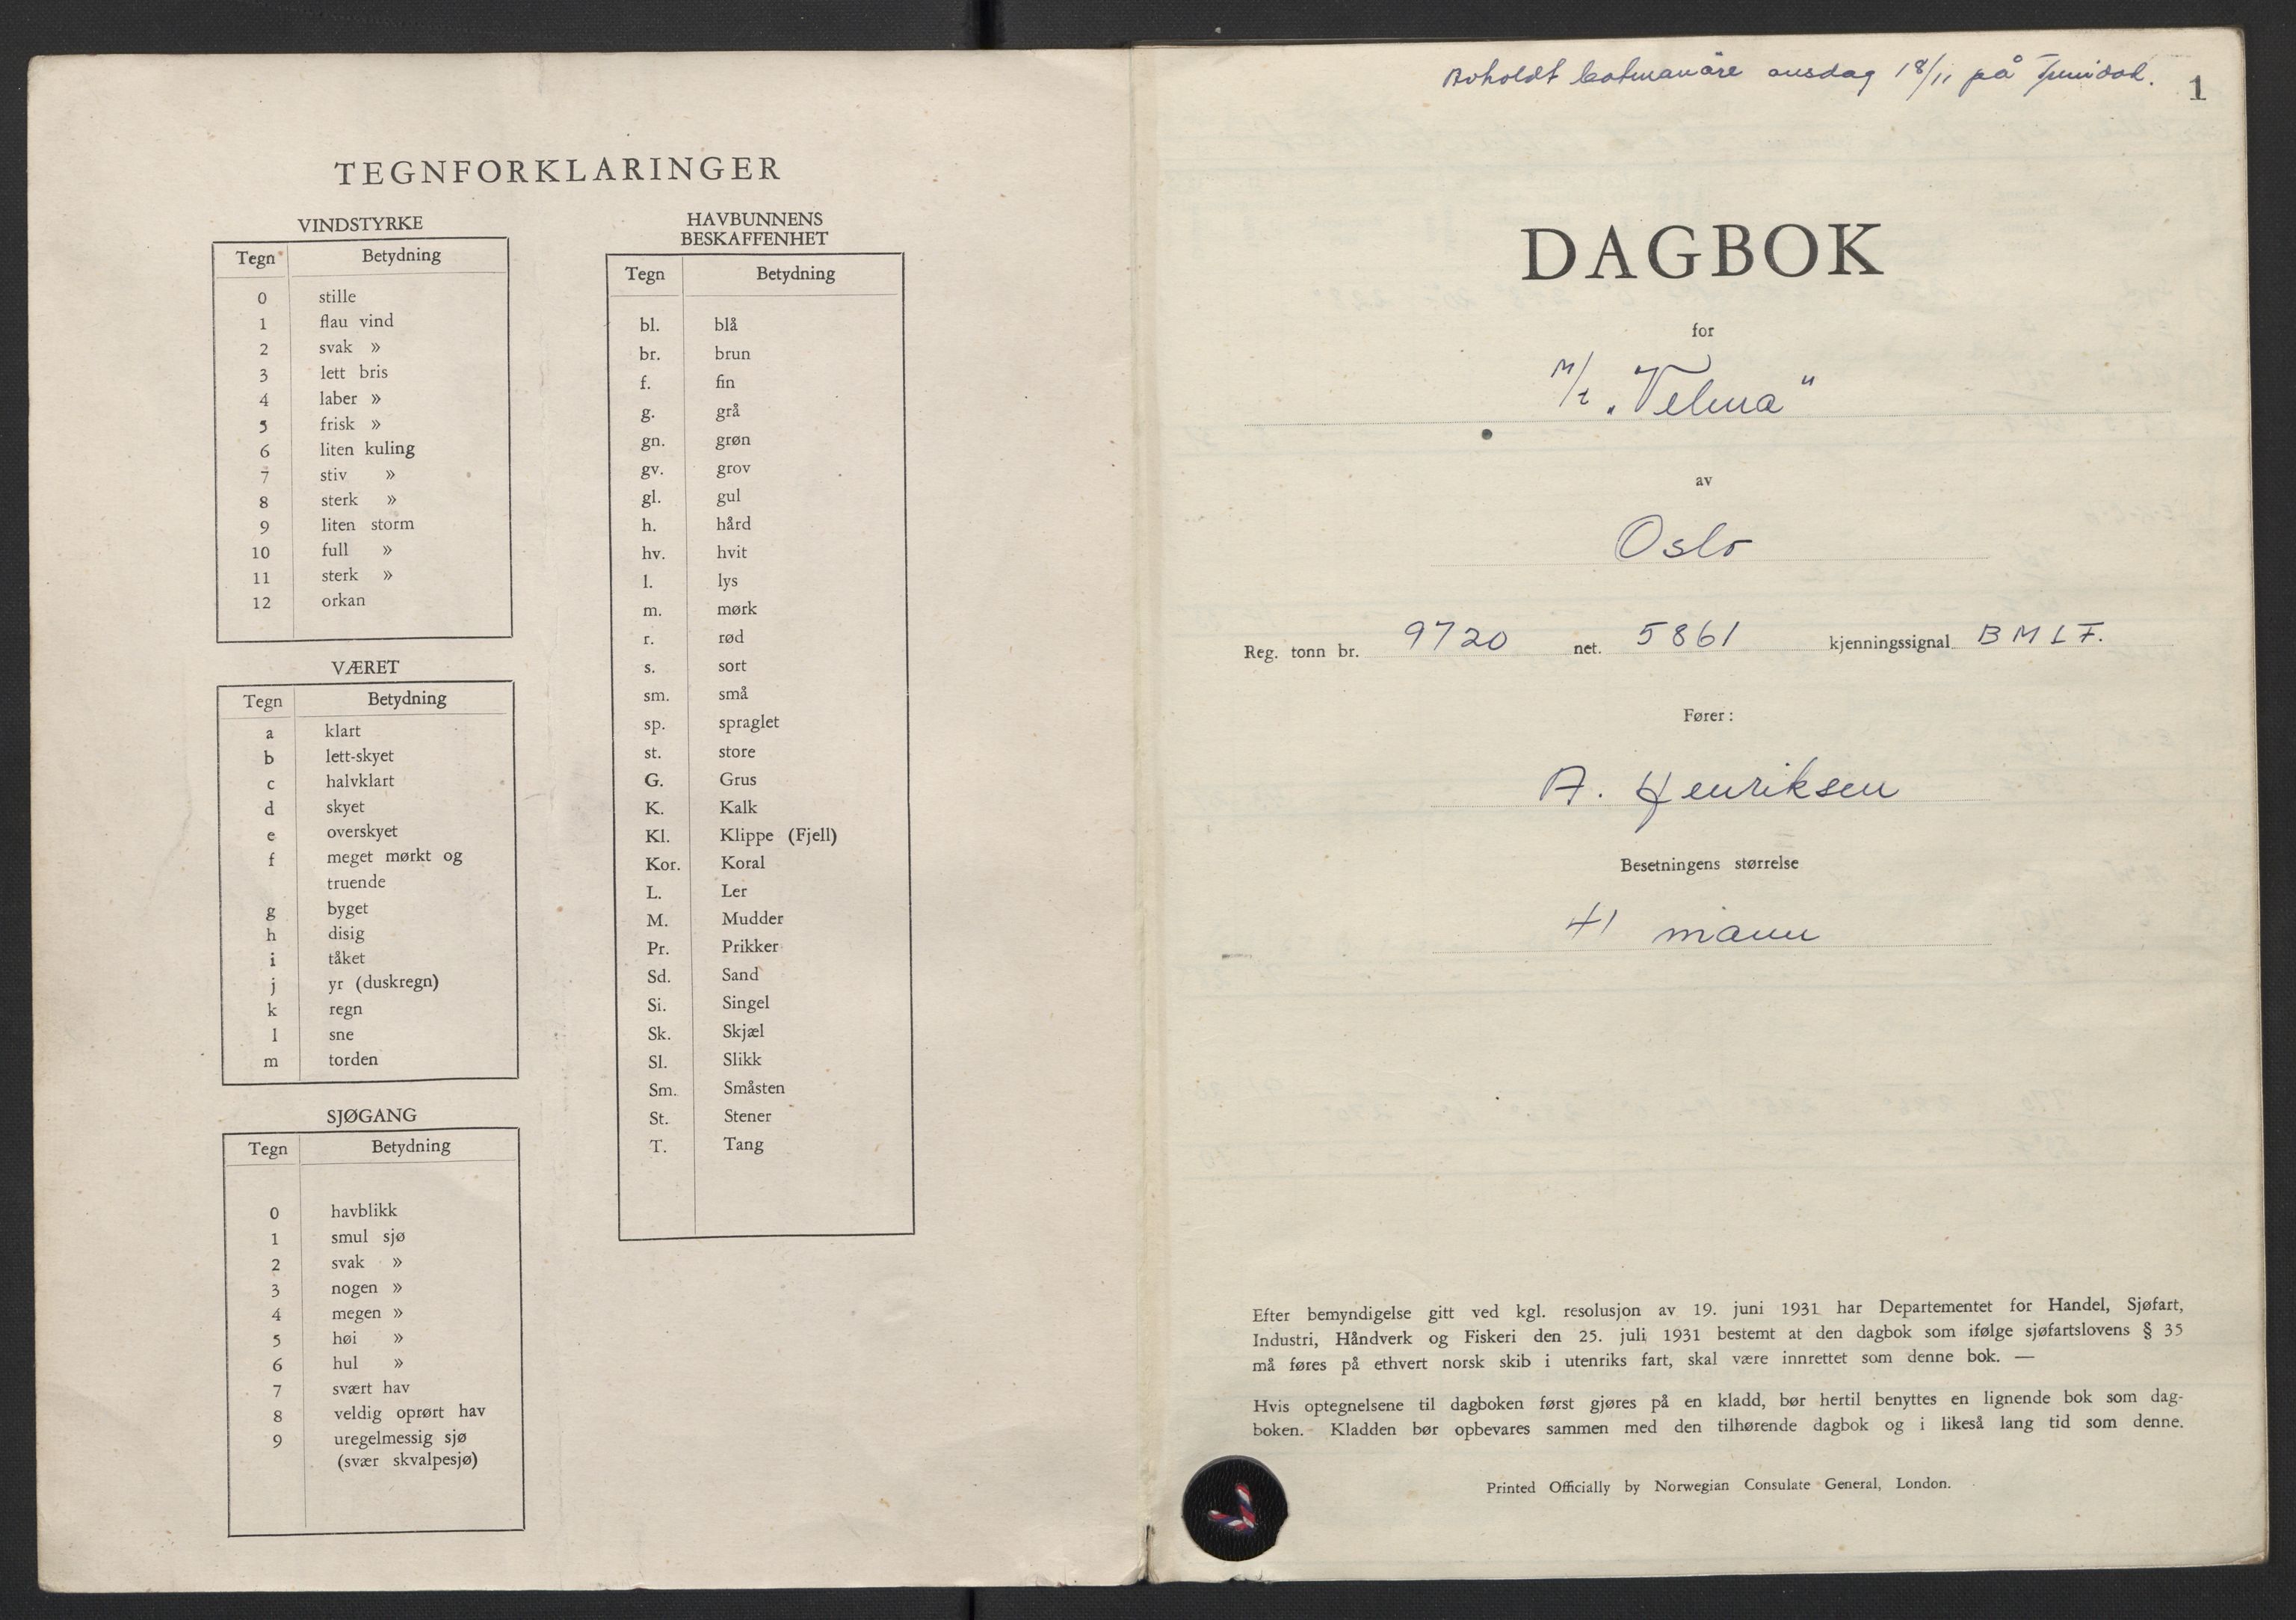 TEGNFORKLARINGER
VINDSTYRKE
Tegn Betydning
0 stille
1 flau vind
2 svak »
3 lett bris
4 laber »
5 frisk »
6 liten kuling
7 stiv »
8 sterk »
9 liten storm
10 full »
11 sterk »
12 orkan
VÆRET
Tegn Betydning
a klart
b lett-skyet
c halvklart
d skyet
e overskyet
f meget mørkt og
truende
g byget
h disig
i tåket
j yr (duskregn)
k regn
l sne
m torden
SJØGANG
Tegn Betydning
0 havblikk
1 smul sjø
2 svak »
3 nogen »
4 megen »
5 høi »
6 hul »
7 svært hav
8 veldig oprørt hav
9 uregelmessig sjø
(svær skvalpesjø)
HAVBUNNENS
BESKAFFENHET
Tegn Betydning
bl. blå
br. brun
f. fin
g. grå
gn. grøn
gv. grov
gl. gul
h. hård
hv. hvit
l. lys
m. mørk
r. rød
s. sort
sm. små
sp. spraglet
st. store
G. Grus
K. Kalk
Kl. Klippe (Fjell)
Kor. Koral
L. Ler
M. Mudder
Pr. Prikker
Sd. Sand
Si. Singel
Sk. Skjæl
Sl. Slikk
Sm. Småsten
St. Stener
T. Tang
onsdag 18/11 på
1
DAGBOK
for
M/t „Velma"
av
Oslo
Reg. tonn br. 9720 net. 5861 kjenningssignal B M L F.
Fører:
A. Henriksen
Besetningens størrelse
41 mann
Efter bemyndigelse gitt ved kgl. resolusjon av 19. juni 1931 har Departementet for Handel, Sjøfart,
Industri, Håndverk og Fiskeri den 25. juli 1931 bestemt at den dagbok som ifølge sjøfartslovens § 35
må føres på ethvert norsk skib i utenriks fart, skal være innrettet som denne bok. —
Hvis optegnelsene til dagboken først gjøres på en kladd, bør hertil benyttes en lignende bok som dag-
boken. Kladden bør opbevares sammen med den tilhørende dagbok og i likeså lang tid som denne.
Printed Officially by Norwegian Consulate General, London.